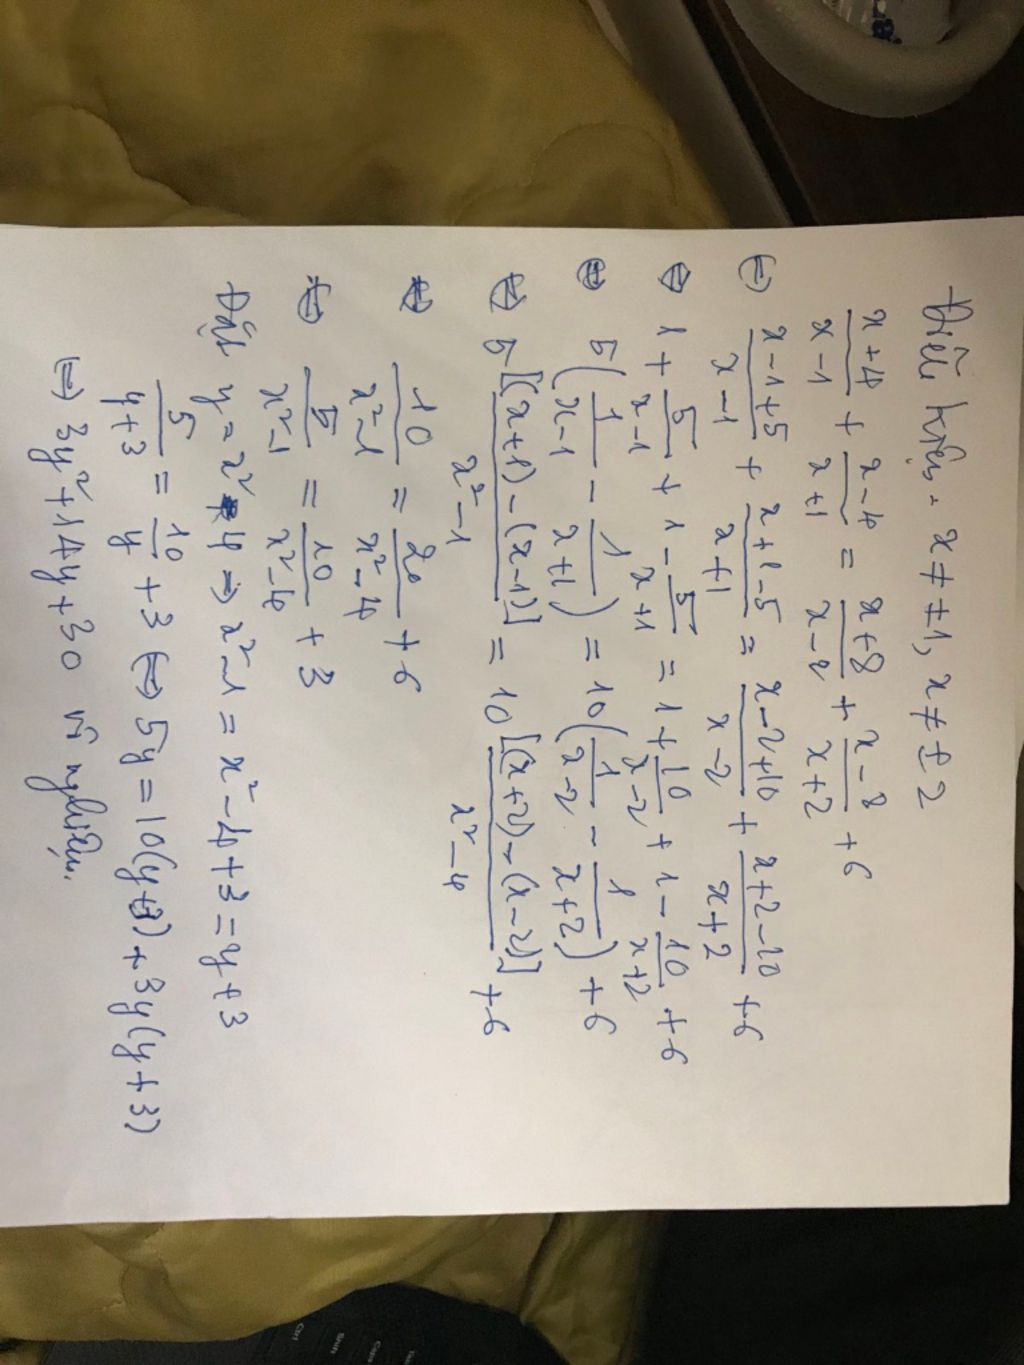 Điều kiện: x ≠ ±1, x ≠ ±2
\frac{x+4}{x-1} + \frac{x-4}{x+1} = \frac{x+8}{x-2} + \frac{x-8}{x+2} + 6
⇔ \frac{x-1+5}{x-1} + \frac{x+1-5}{x+1} = \frac{x-2+10}{x-2} + \frac{x+2-10}{x+2} + 6
⇔ 1 + \frac{5}{x-1} + 1 - \frac{5}{x+1} = 1 + \frac{10}{x-2} + 1 - \frac{10}{x+2} + 6
⇔ 5(\frac{1}{x-1} - \frac{1}{x+1}) = 10(\frac{1}{x-2} - \frac{1}{x+2}) + 6
⇔ 5\frac{[(x+1)-(x-1)]}{x²-1} = 10\frac{[(x+2)-(x-2)]}{x²-4} + 6
⇔ \frac{10}{x²-1} = \frac{20}{x²-4} + 6
⇔ \frac{5}{x²-1} = \frac{10}{x²-4} + 3
Đặt y = x² - 4 ⇒ x²-1 = x²-4+3 = y+3
\frac{5}{y+3} = \frac{10}{y} + 3 ⇔ 5y = 10(y+3) + 3y(y+3)
⇔ 3y²+14y+30 vô nghiệm.
Ctrl
Shift
Caps